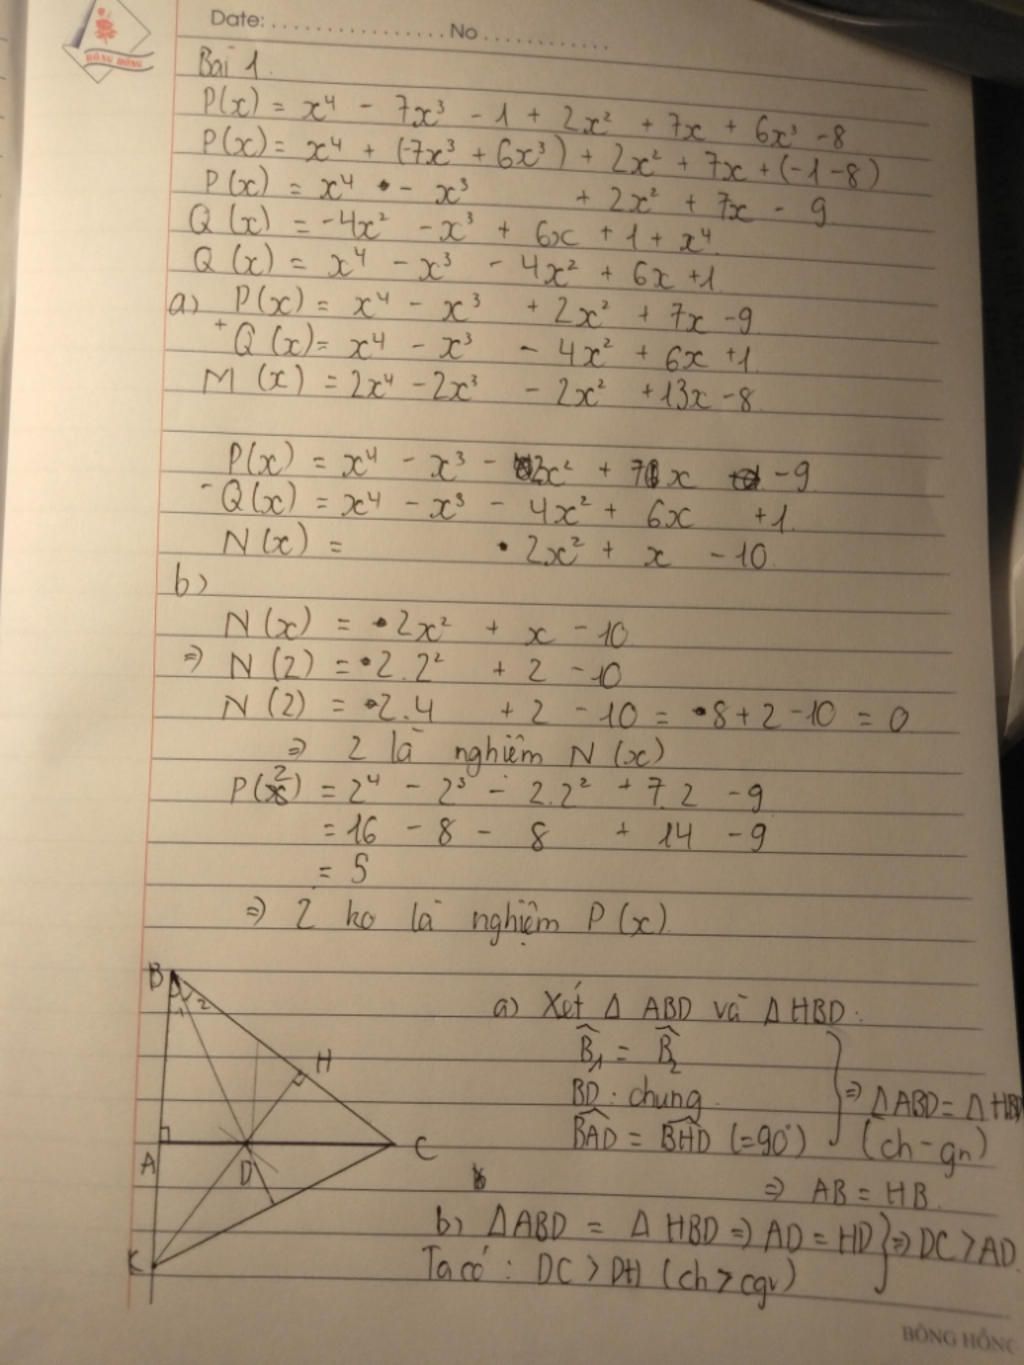 BÔNG HỒNG
Date: ................. No ............
Bài 1.
P(x) = x⁴ - 7x³ - 1 + 2x² + 7x + 6x³ - 8
P(x) = x⁴ + (-7x³ + 6x³) + 2x² + 7x + (-1-8)
P(x) = x⁴ - x³ + 2x² + 7x - 9
Q(x) = -4x² - x³ + 6x + 1 + x⁴
Q(x) = x⁴ - x³ - 4x² + 6x + 1
a) P(x) = x⁴ - x³ + 2x² + 7x - 9
+ Q(x) = x⁴ - x³ - 4x² + 6x + 1
M(x) = 2x⁴ - 2x³ - 2x² + 13x - 8
P(x) = x⁴ - x³ - 2x² + 7x - 9
- Q(x) = x⁴ - x³ - 4x² + 6x + 1
N(x) = 2x² + x - 10
b)
N(x) = 2x² + x - 10
⇒ N(2) = 2.2² + 2 - 10
N(2) = 2.4 + 2 - 10 = 8 + 2 - 10 = 0
⇒ 2 là nghiệm N(x)
P(2) = 2⁴ - 2³ - 2.2² + 7.2 - 9
= 16 - 8 - 8 + 14 - 9
= 5
⇒ 2 ko là nghiệm P(x)
B
1 2
H
A
D
C
K
a) Xét Δ ABD và Δ HBD:
B̂₁ = B̂₂
BD: chung
BAD = BHD (=90°)
⇒ ΔABD = ΔHBD
(ch - gn)
⇒ AB = HB
b) ΔABD = ΔHBD ⇒ AD = HD } ⇒ DC > AD
Ta có: DC > DH (ch > cgv)
BÔNG HỒNG